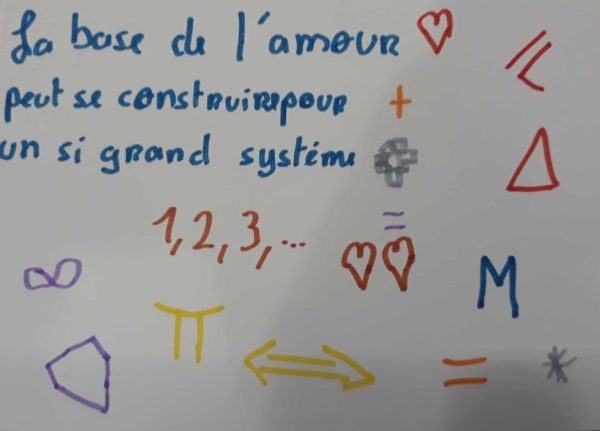 La base de l'amour ♡
peut se construire pour +
un si grand système
=
1, 2, 3, ... ♡♡
∞ M
π ⇔ = *